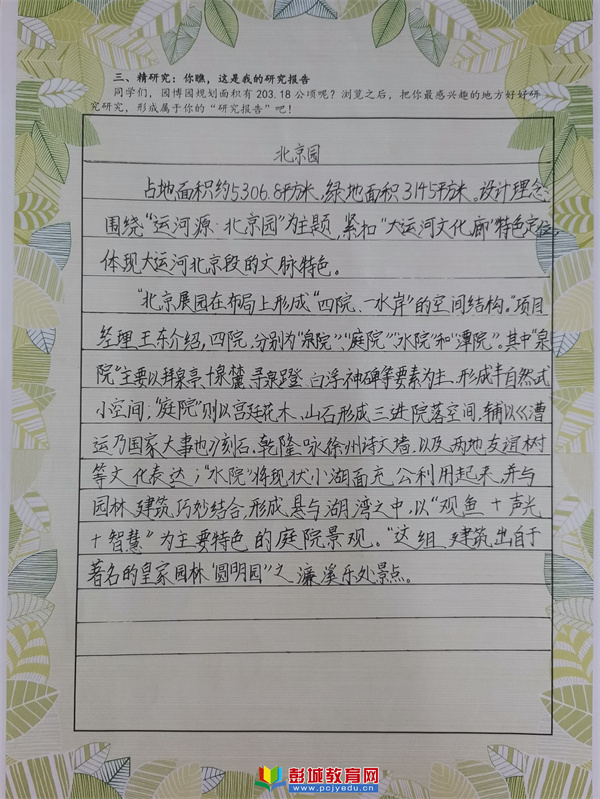 三、精研究：你瞧，这是我的研究报告
同学们，园博园规划面积有 203.18 公顷呢？浏览之后，把你最感兴趣的地方好好研
究研究，形成属于你的“研究报告”吧！
北京园
占地面积约5306.8平方米，绿地面积3145平方米。设计理念
围绕“运河源·北京园”为主题，紧扣“大运河文化廊”特色定位，
体现大运河北京段的文脉特色。
“北京展园在布局上形成“四院、一水岸”的空间结构。”项目
经理王东介绍，四院，分别为“泉院”、“庭院”、“水院”和“潭院”。其中“泉
院”主要以拜泉亭、十泉麓、寻泉蹬、白浮神碑等要素为主，形成半自然式
小空间；“庭院”则以宫廷花木、山石形成三进院落空间，辅以《漕
运乃国家大事也》刻石、乾隆咏徐州诗文墙，以及两地友谊树
等文化表达；“水院”将现状小湖面充公利用起来，并与
园林建筑巧妙结合，形成悬与湖湾之中，以“观鱼+声光
+智慧”为主要特色的庭院景观。“这组建筑出自于
著名的皇家园林“圆明园”之濂溪乐处景点。
彭城教育网
www.pcjyedu.cn